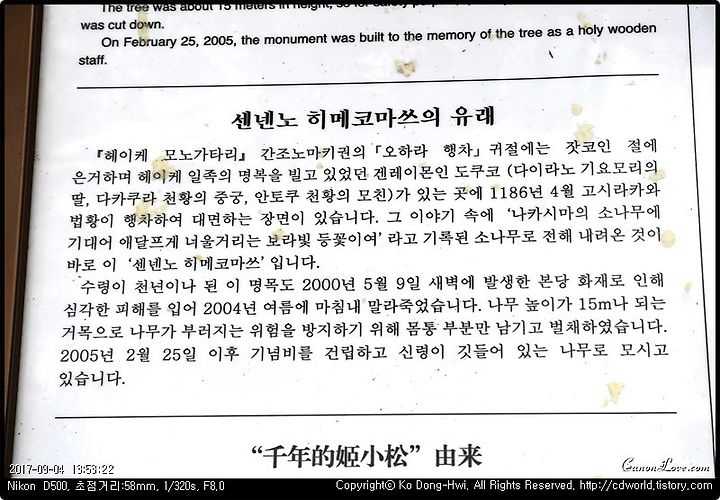 The tree was about 15 meters in height, so for safety
was cut down.
On February 25, 2005, the monument was built to the memory of the tree as a holy wooden
staff.
센넨노 히메코마쓰의 유래
『헤이케 모노가타리』 간조노마키권의「오하라 행차」귀절에는 잣코인 절에
은거하며 헤이케 일족의 명복을 빌고 있었던 겐레이몬인 도쿠코 (다이라노 기요모리의
딸, 다카쿠라 천황의 중궁, 안토쿠 천황의 모친)가 있는 곳에 1186년 4월 고시라카와
법황이 행차하여 대면하는 장면이 있습니다. 그 이야기 속에 ‘나카시마의 소나무에
기대어 애달프게 너울거리는 보라빛 등꽃이여’ 라고 기록된 소나무로 전해 내려온 것이
바로 이 ‘센넨노 히메코마쓰’ 입니다.
수령이 천년이나 된 이 명목도 2000년 5월 9일 새벽에 발생한 본당 화재로 인해
심각한 피해를 입어 2004년 여름에 마침내 말라죽었습니다. 나무 높이가 15m나 되는
거목으로 나무가 부러지는 위험을 방지하기 위해 몸통 부분만 남기고 벌채하였습니다.
2005년 2월 25일 이후 기념비를 건립하고 신령이 깃들어 있는 나무로 모시고
있습니다.
“千年的姬小松” 由来
2017-09-04 13:53:22
CanonLove.com
Nikon D500, 초점거리:58mm, 1/320s, F8.0
Copyright© Ko Dong-Hwi, All Rights Reserved, http://cdworld.tistory.com